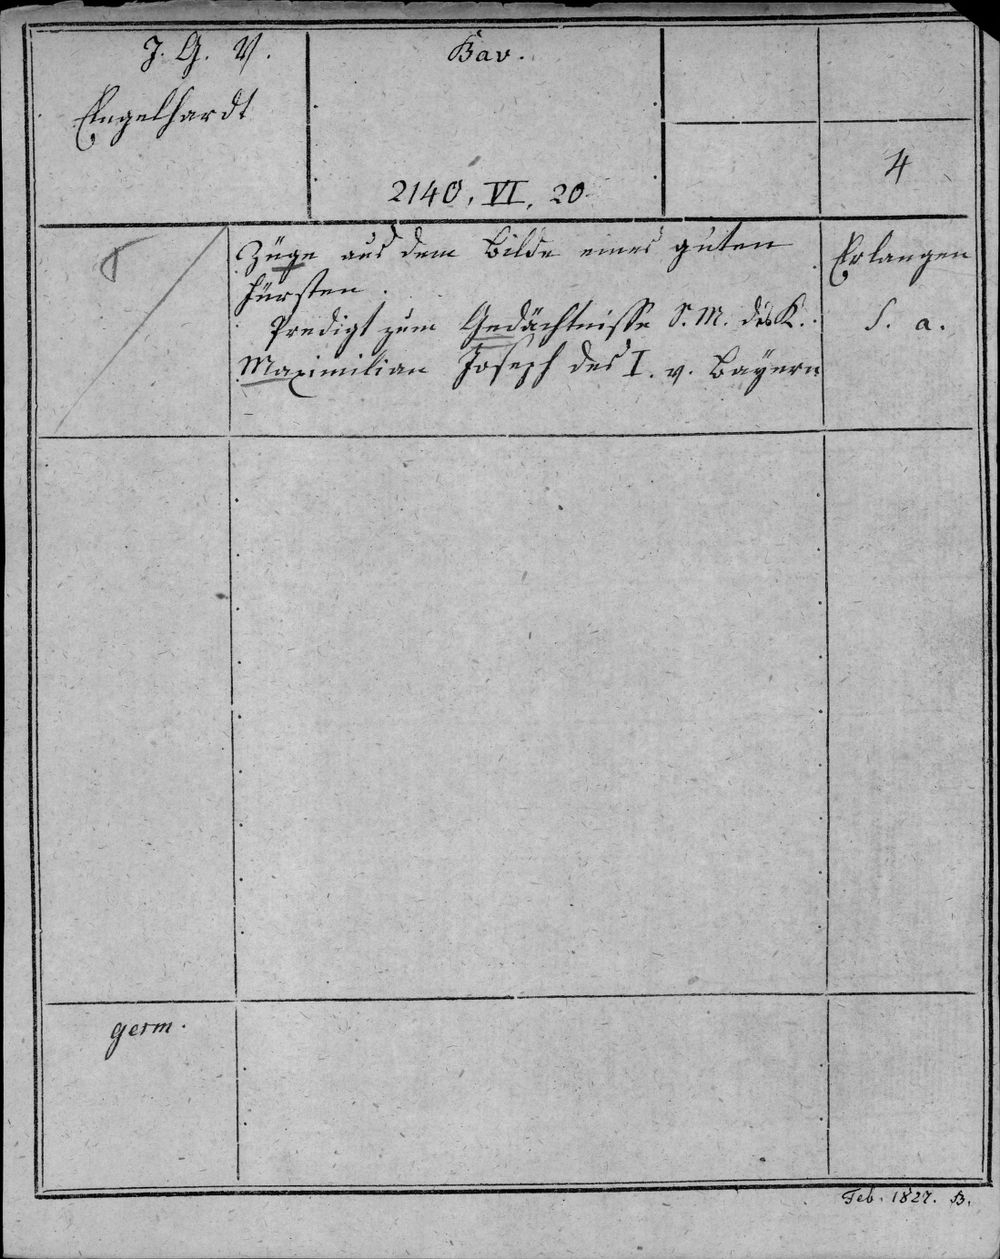 J. G. V.
Engelhardt
Bav.
2140, VI, 20
4
Züge aus dem Bilde eines guten
Fürsten.
Predigt zum Gedächtnisse S. M. des K.
Maximilian Joseph des I. v. Bayern
Erlangen
S. a.
germ.
Feb. 1827. B.